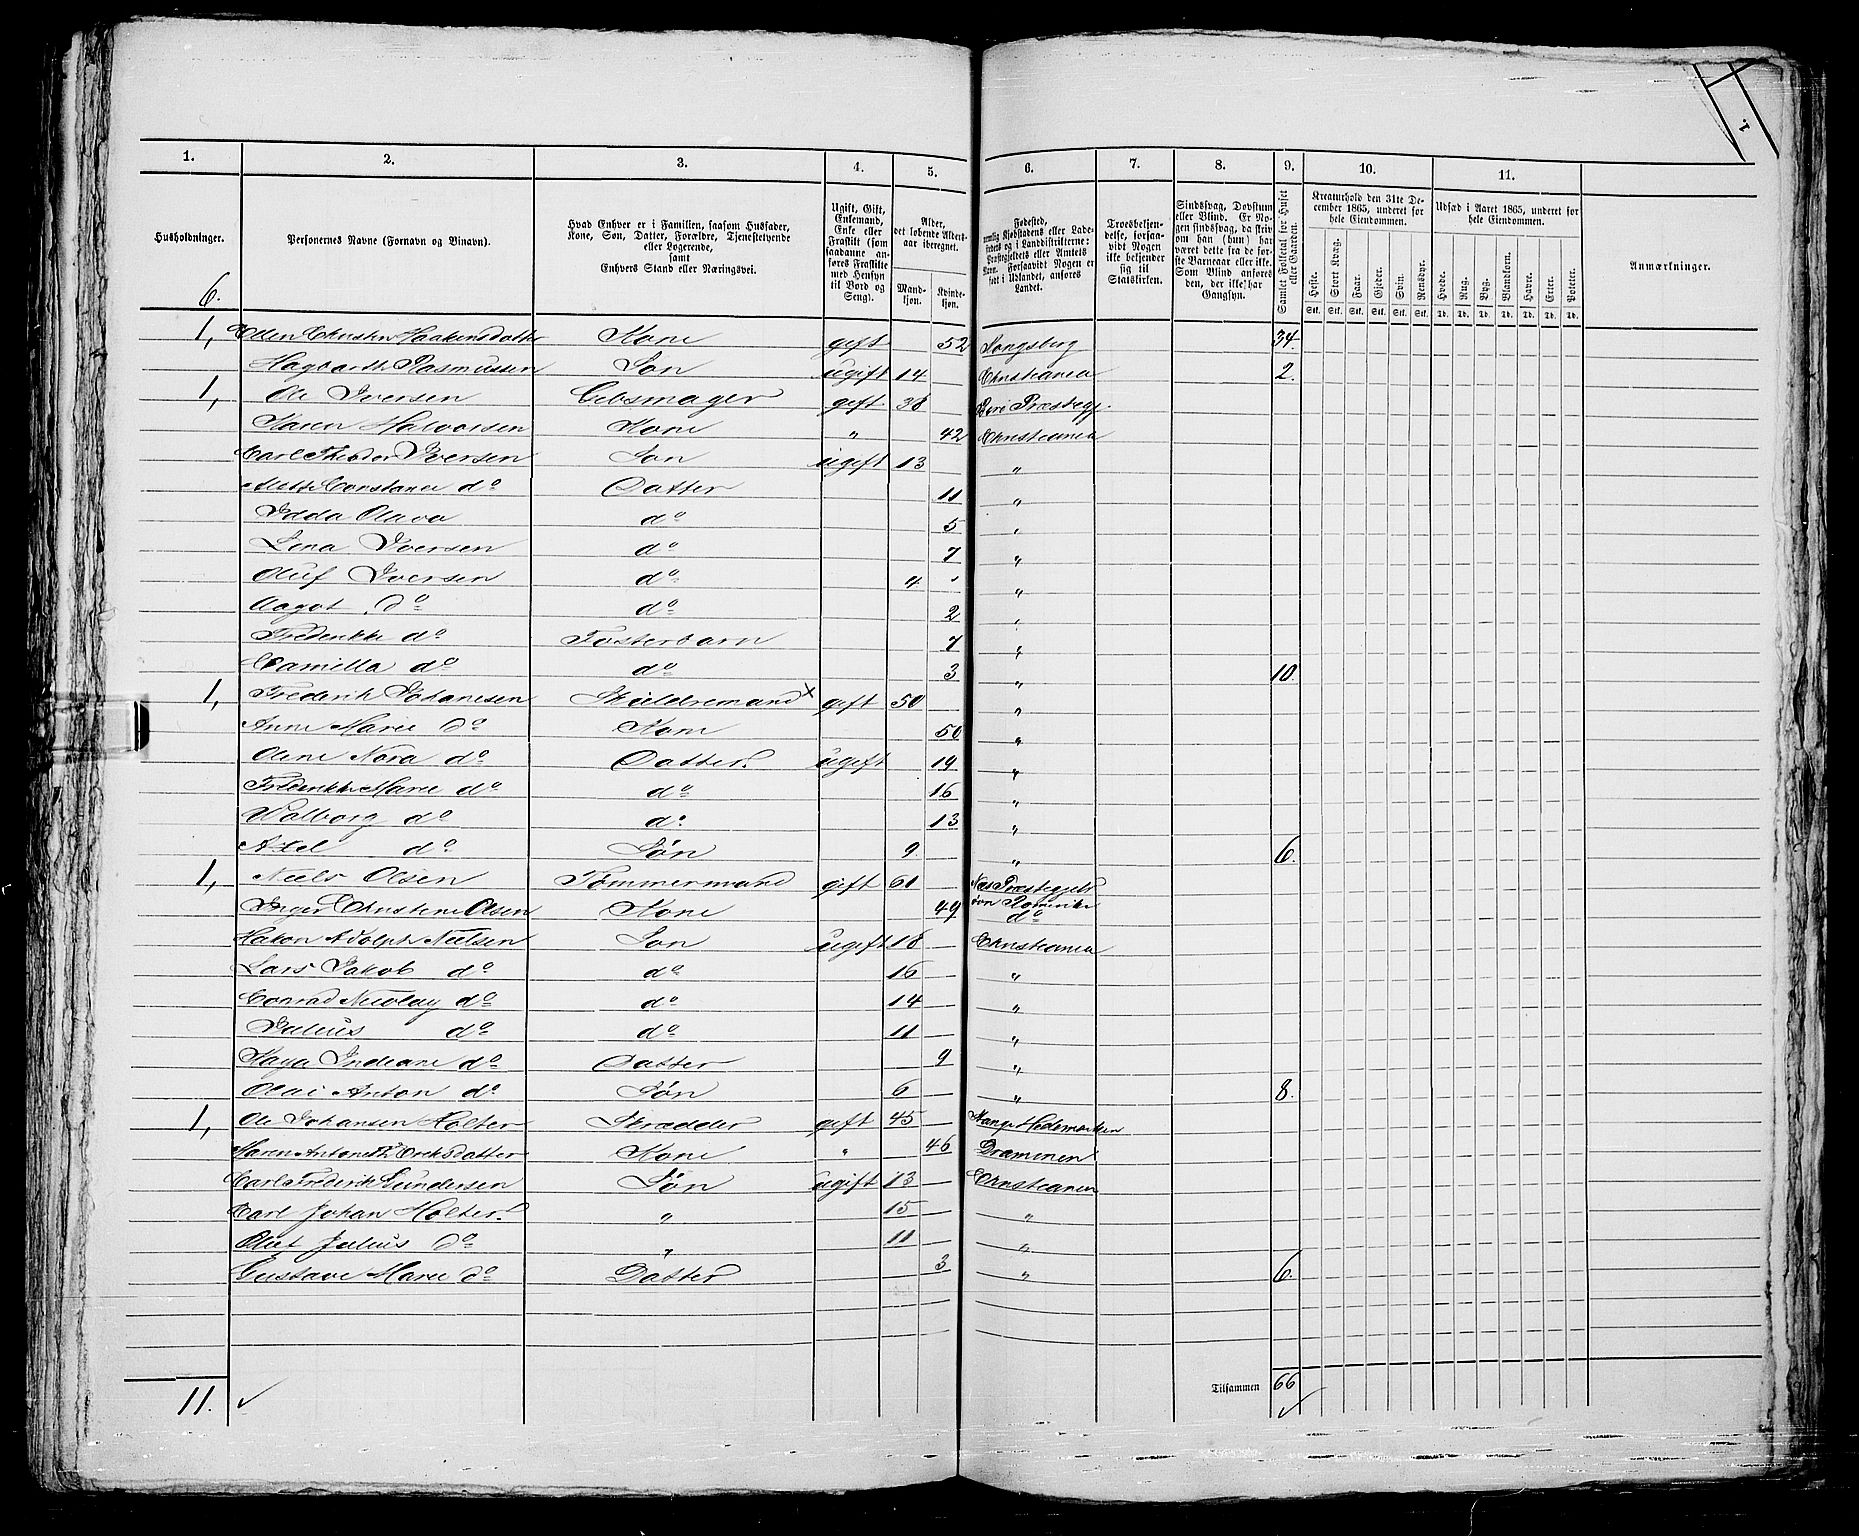 1.
1. 2. 3. 4. 5. 6. 7. 8. 9. 10. 11.
Husholdninger. Personernes Navne (Fornavn og Binavn). Hvad Enhver er i Familien, saasom Husfader, Kone, Søn, Datter, Forældre, Tjenestetyende eller Logerende, samt Enhvers Stand eller Næringsvei. Ugift, Gift, Enkemand, Enke eller Fraskilt (som saadanne anføres Fraskilte med Hensyn til Bord og Seng). Alder, det løbende Aldersaar iberegnet. Mandkjøn. Kvindekjøn. Fødested, nemlig Kjøbstadens eller Ladestedets og i Landdistrikterne: Præstegjeldets eller Amtets Navn. Forsaavidt Nogen er født i Udlandet, anføres Landet. Troesbekjendelse, forsaavidt Nogen ikke bekjender sig til Statskirken. Sindssvag, Døvstum eller Blind. Er Nogen sindssvag, da skriv om han (hun) har været dette fra de første Barneaar eller ikke. Som Blind anføres den, der ikke har Gangsyn. Samlet Folketal for Huset eller Gaarden. Kreaturhold den 31te December 1865, underet for hele Eiendommen. Udsæd i Aaret 1865, underet for hele Eiendommen. Anmærkninger.
Heste. Stort Kvæg. Faar. Gjeder. Svin. Rensdyr. Hvede. Rug. Byg. Blandkorn. Havre. Erter. Poteter.
Stk. Stk. Stk. Stk. Stk. Stk. Td. Td. Td. Td. Td. Td. Td.
6.
1, Ellen Christin Haakensdatter Kone gift 52 Kongsberg 34.
Hagbarth Rasmussen Søn ugift 14 Christiania 2.
1, Ole Iversen Gibsmager gift 38 Præstegj.
Karen Halvorsen Kone " 42 Christiania
Carl Theodor Iversen Søn ugift 13 "
Constance do Datter 11 "
Olava do 5 "
Lena Iversen do 7 "
Oluf Iversen do 4 "
Aagot do do 2 "
Frederikke do Fosterbarn 7 "
Camilla do do 3 " 10.
1, Frederik Johanesen Skildremand x gift 50 "
Anne Marie do Kone 50 "
Oline Nora do Datter ugift 19 "
Frederikke Marie do do 16 "
Valborg do do 13 "
Axel do Søn 9. " 6.
1, Niels Olsen Tømmermand gift 61 Næs Præstegjeld
Inger Christine Olsen Kone 49 Romerike do
Hakon Adolph Nielsen Søn ugift 18 Christiania
Lars Jakob do do 16 "
Conrad Nicolay do do 14 "
Julius do do 11 "
Kaya Indiane do Datter 9 "
Olai Anton do Søn 6 " 8.
1, Ole Johansen Holter Skrædder gift 45 Stange Hedemarken
Maren Antonette Eriksdatter Kone " 46 Drammen
Carl Frederik Gundersen Søn ugift 13 Christiania
Carl Johan Holter. " 15 "
Oluf Julius do " 11 "
Gustave Marie do Datter 3 " 6.
11. ✓ Tilsammen 66 ✓